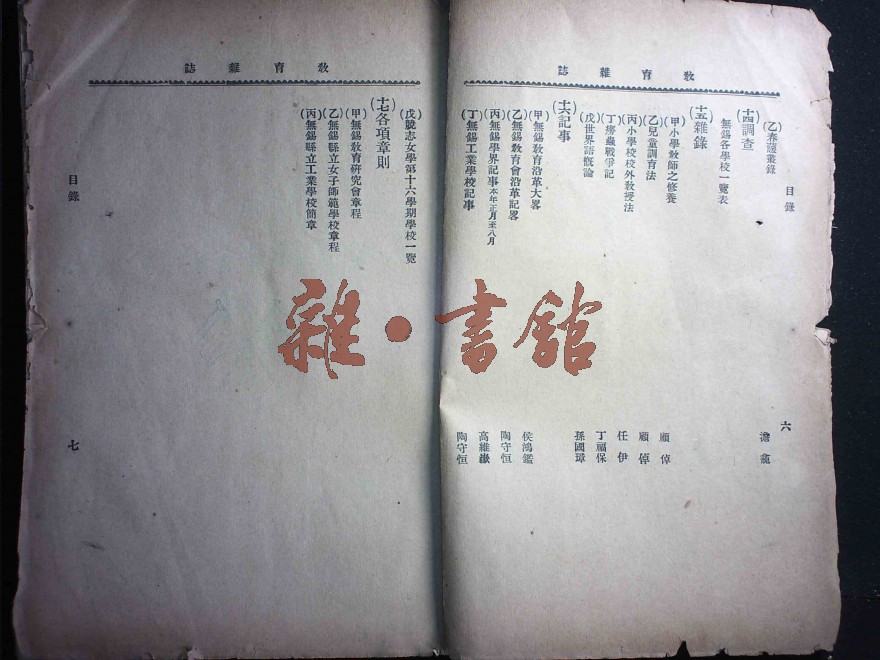 教育雜誌
目錄
六
(乙)春蘐叢錄 澹龕
(十四)調查
無錫各學校一覽表
(十五)雜錄
(甲)小學敎師之修養 顧倬
(乙)兒童訓育法 顧倬
(丙)小學校校外敎授法 任伊
(丁)癆蟲戰爭記 丁福保
(戊)世界語槪論 孫國璋
(十六)記事
(甲)無錫敎育沿革大畧 侯鴻鑑
(乙)無錫敎育會沿革記畧 陶守恒
(丙)無錫學界記事本年正月至八月 高維嶽
(丁)無錫工業學校記事 陶守恒
教育雜誌
(戊)競志女學第十六學期學校一覽
(十七)各項章則
(甲)無錫敎育硏究會章程
(乙)無錫縣立女子師範學校章程
(丙)無錫縣立工業學校簡章
目錄
七
雜·書館